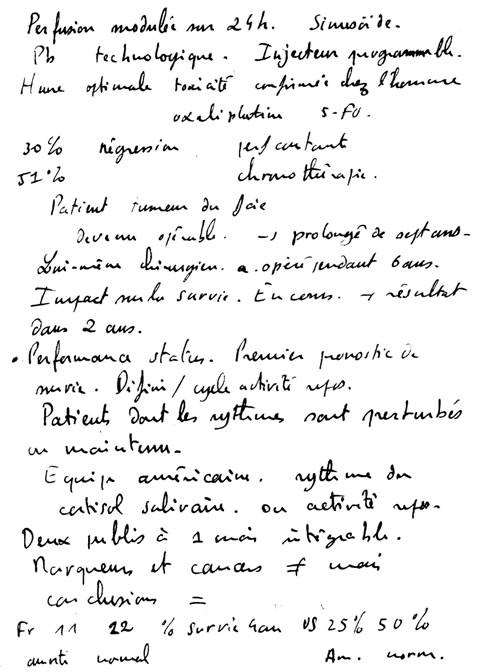 Perfusion modulée sur 24h. Sinusoïde.
Pb technologique. Injecteur programmable.
Heure optimale toxicité confirmée chez l'homme
oxaliplatine 5-FU.
30% régression perf constant
51% chronothérapie.
Patient tumeur du foie
devenu opérable. → prolongé de sept ans.
Lui-même chirurgien. a opéré pendant 6 ans.
Impact sur la survie. En cours. → résultat
dans 2 ans.
• Performance status. Premier pronostic de
survie. Défini / cycle activité repos.
Patients dont les rythmes sont perturbés
ou maintenus.
Equipe américaine. rythme du
cortisol salivaire. ou activité repos.
Deux publis à 1 mois intégrable.
Marqueurs et cancers ≠ mais
conclusions =
Fr 11 22 % survie 4an US 25% 50%
normal An. norm.